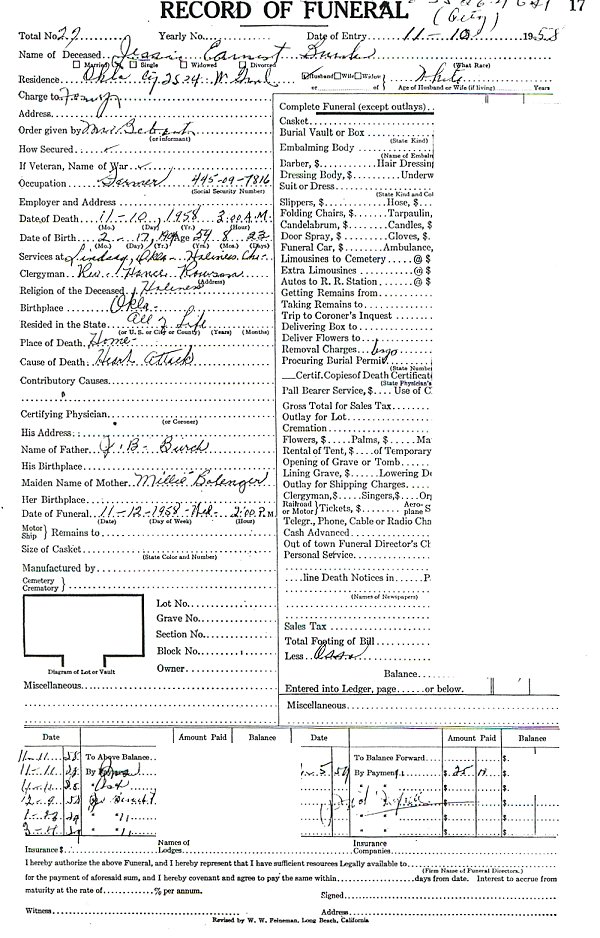 RECORD OF FUNERAL
(City)
17
Total No. 27 Yearly No. Date of Entry 11-10 1958
Name of Deceased Jessie Earnest
Married Single Widowed Divorced (What Race)
Residence Okla City 2524 W. Husband Wife Widow White
or of Age of Husband or Wife (if living) Years
Charge to Family
Address
Order given by Mrs
(or informant)
How Secured
If Veteran, Name of War
Occupation Farmer 445-09-7816
(Social Security Number)
Employer and Address
Date of Death 11-10, 1958 2:00 A.M.
(Mo.) (Day) (Yr.) (Hour)
Date of Birth 2-17, 1904 Age 54 8 23
(Mo.) (Day) (Yr.) (Yrs.) (Mos.) (Days)
Services at Lindsay, Okla- Holiness Ch.
Clergyman Rev.
(Address)
Religion of the Deceased Holiness
Birthplace Okla-
Resided in the State all of Life
(or U. S. or City or County) (Years) (Months)
Place of Death Home-
Cause of Death Heart Attack
Contributory Causes
Certifying Physician
(or Coroner)
His Address
Name of Father J. B.
His Birthplace
Maiden Name of Mother Millie Bolenger
Her Birthplace
Date of Funeral 11-12-1958 Wed. 2:00 P.M
(Date) (Day of Week) (Hour)
Motor Ship } Remains to
Size of Casket
(State Color and Number)
Manufactured by
Cemetery Crematory }
Lot No.
Grave No.
Section No.
Block No.
Owner
Diagram of Lot or Vault
Miscellaneous
Complete Funeral (except outlays)
Casket
Burial Vault or Box
(State Kind)
Embalming Body
(Name of Embalm
Barber, $ Hair Dressing
Dressing Body, $ Underw
Suit or Dress
(State Kind and Col
Slippers, $ Hose, $
Folding Chairs, $ Tarpaulin,
Candelabrum, $ Candles, $
Door Spray, $ Gloves, $
Funeral Car, $ Ambulance,
Limousines to Cemetery @ $
Extra Limousines @ $
Autos to R. R. Station @ $
Getting Remains from
Taking Remains to
Trip to Coroner's Inquest
Delivering Box to
Deliver Flowers to
Removal Charges
Procuring Burial Permit
(State Number
Certif. Copies of Death Certificat
(State Physician's
Pall Bearer Service, $ Use of C
Gross Total for Sales Tax
Outlay for Lot
Cremation
Flowers, $ Palms, $ Ma
Rental of Tent, $ of Temporary
Opening of Grave or Tomb
Lining Grave, $ Lowering De
Outlay for Shipping Charges
Clergyman, $ Singers, $ Org
Railroad or Motor } Tickets, $ Aero-plane S
Telegr., Phone, Cable or Radio Cha
Cash Advanced
Out of town Funeral Director's Ch
Personal Service
line Death Notices in P
(Names of Newspapers)
Sales Tax
Total Footing of Bill
Less
Balance
Entered into Ledger, page or below.
Miscellaneous
Date Amount Paid Balance Date Amount Paid Balance
11-11 58 To Above Balance To Balance Forward $
By By Payment $ 25 $
Insurance $ Names of Lodges Insurance Companies
I hereby authorize the above Funeral, and I hereby represent that I have sufficient resources Legally available to
(Firm Name of Funeral Directors.)
for the payment of aforesaid sum, and I hereby covenant and agree to pay the same within days from date. Interest to accrue from
maturity at the rate of % per annum. Signed
Witness Address
Revised by W. W. Feineman, Long Beach, California